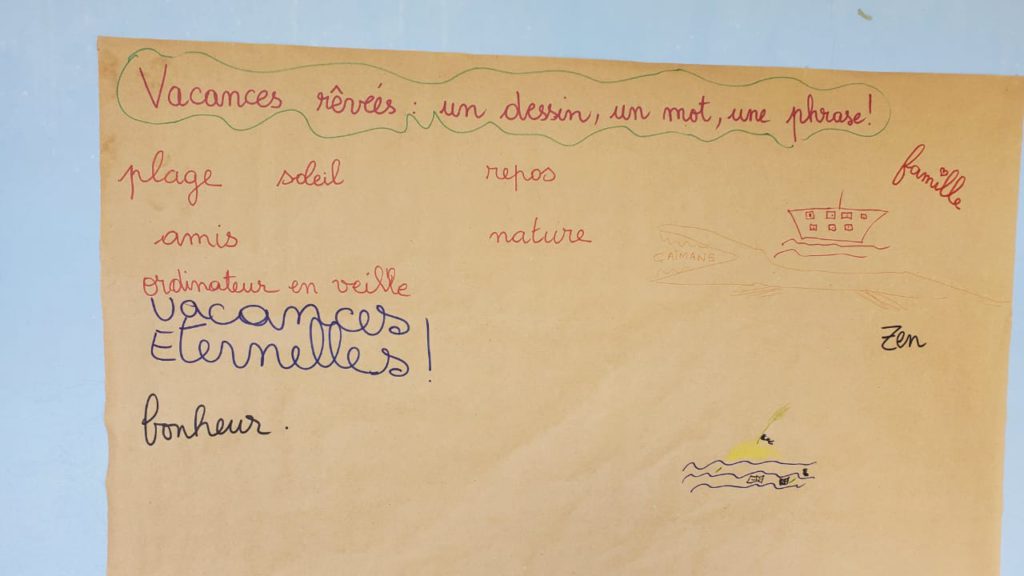 Vacances rêvées : un dessin, un mot, une phrase !
plage soleil repos
famille
amis nature
CAÏMANS
ordinateur en veille
Vacances
Eternelles !
Zen
bonheur.